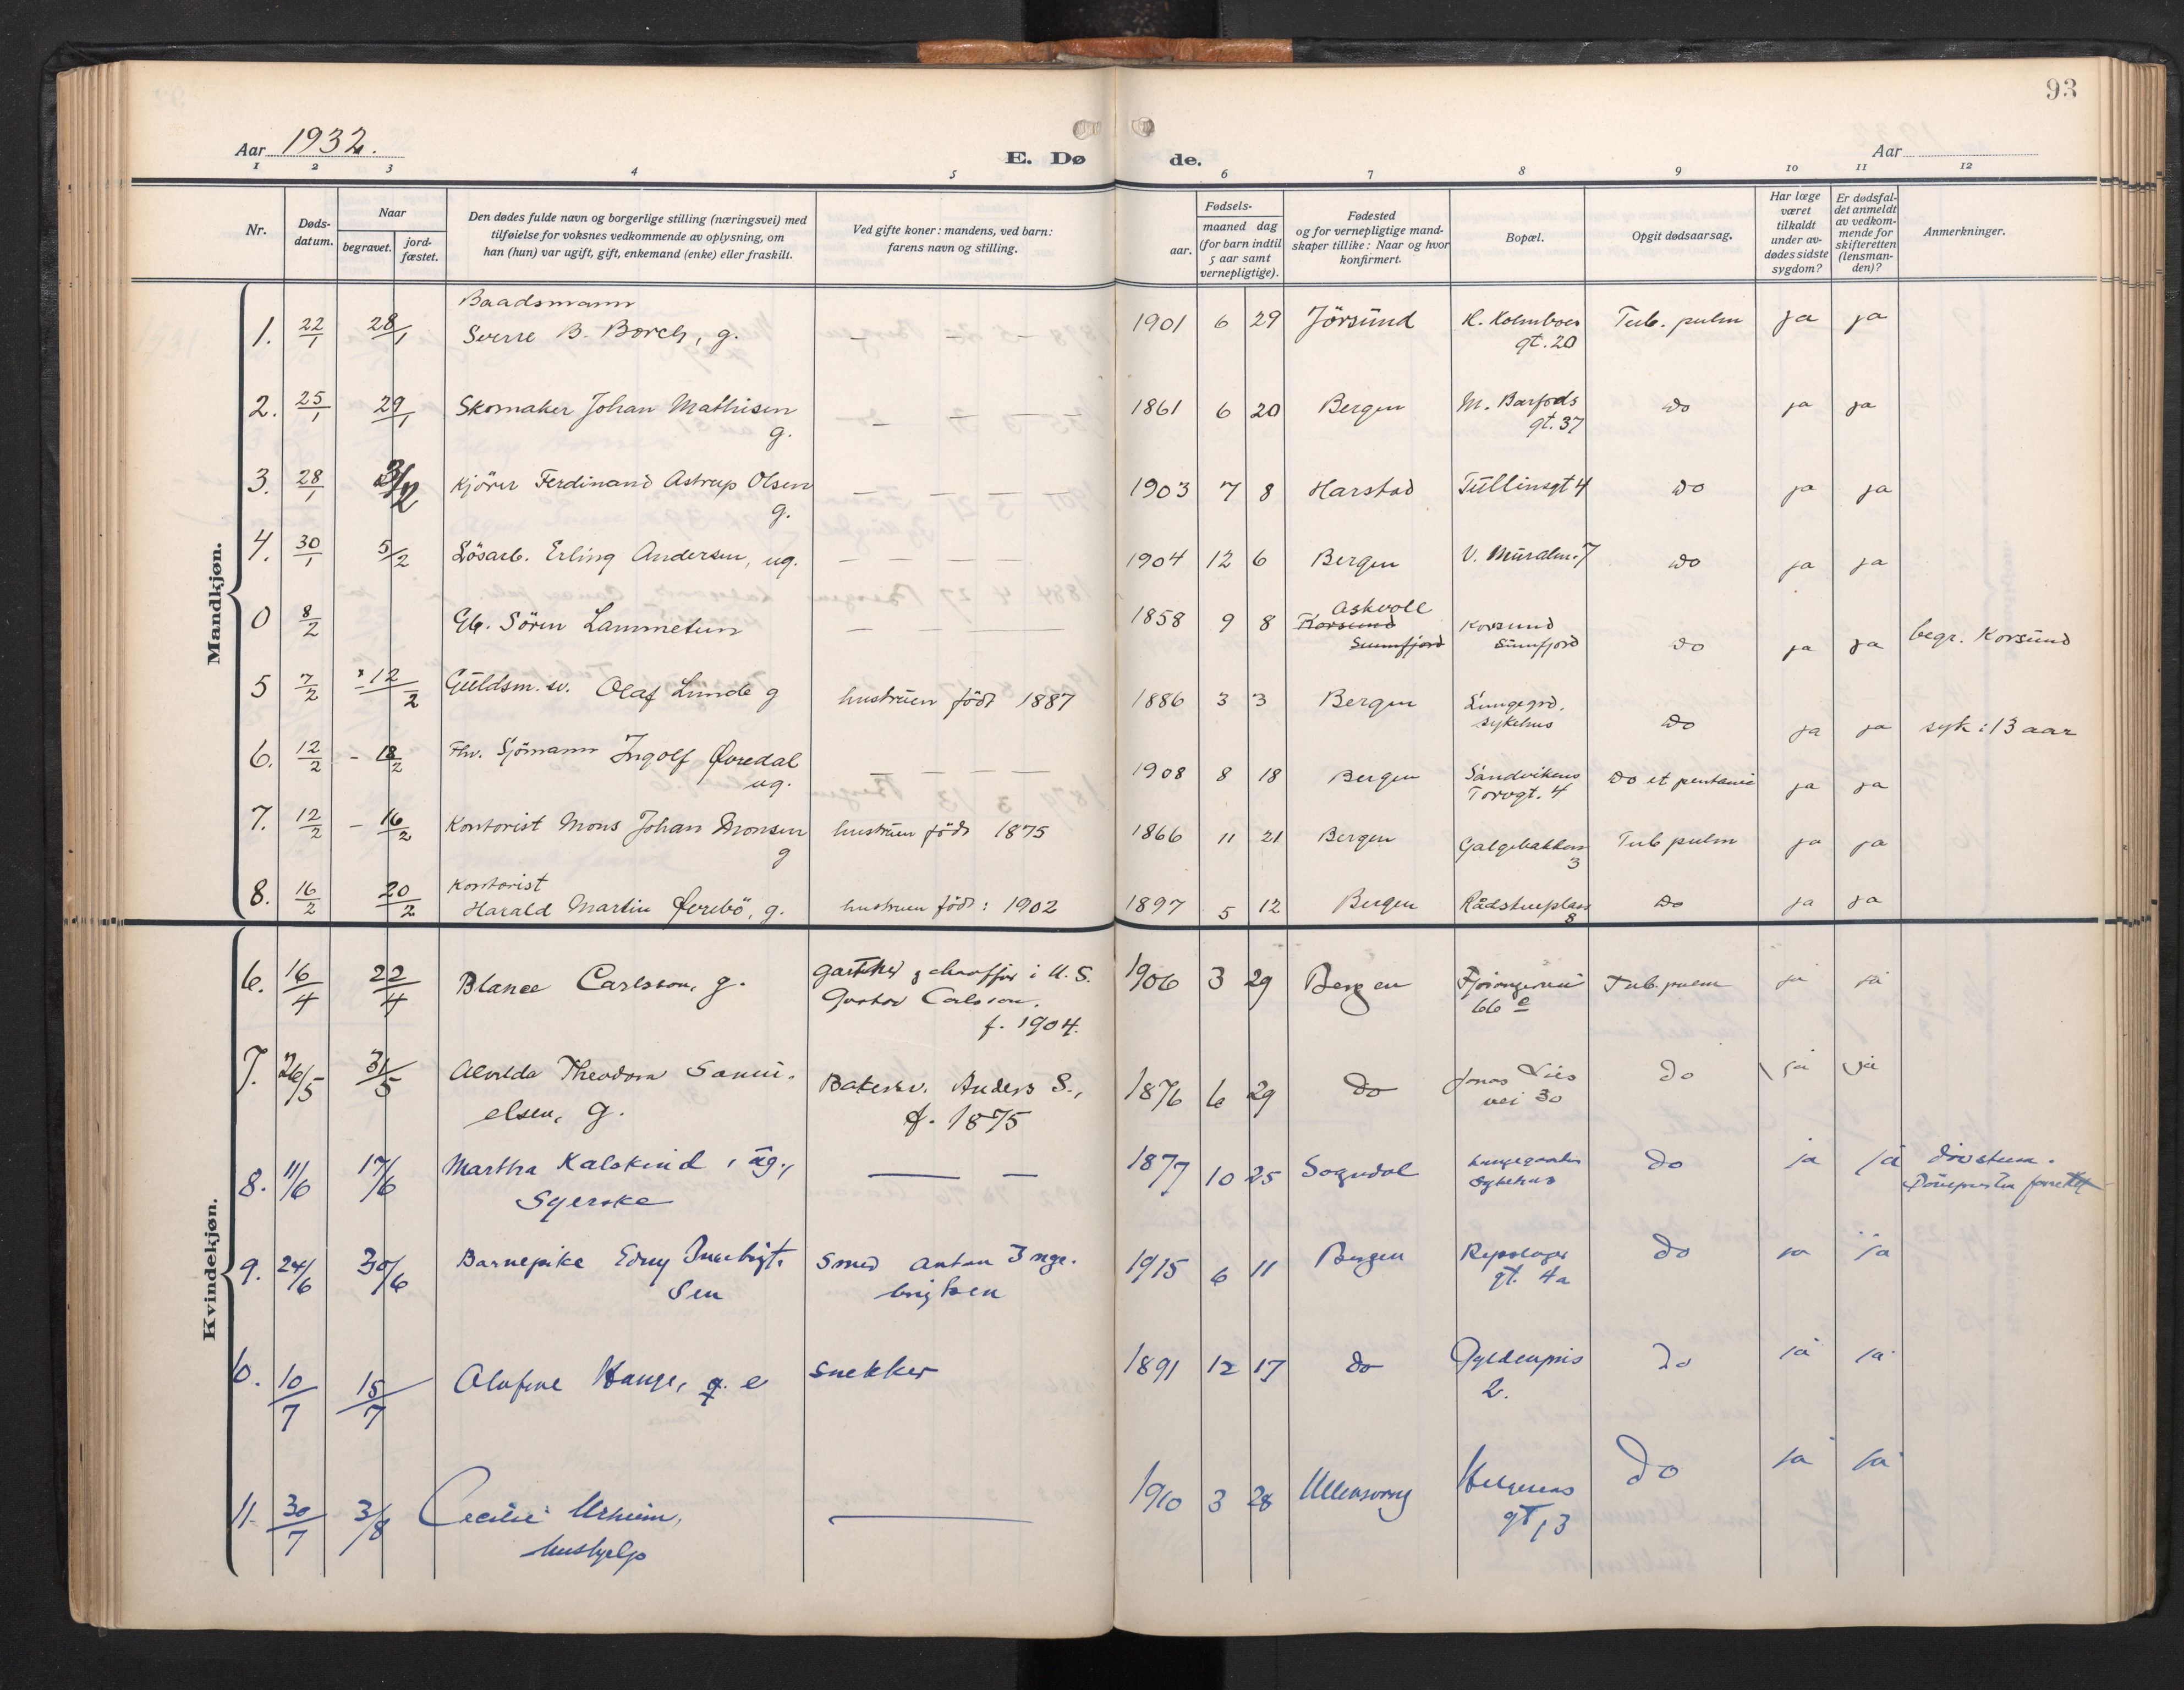 93
Aar 1932.
E. Døde.
Aar
1 2 3 4 5 6 7 8 9 10 11 12
Nr.
Døds-
datum.
Naar
begravet.
jord-
fæstet.
Den dødes fulde navn og borgerlige stilling (næringsvei) med
tilføielse for voksnes vedkommende av oplysning, om
han (hun) var ugift, gift, enkemand (enke) eller fraskilt.
Ved gifte koner: mandens, ved barn:
farens navn og stilling.
Fødsels-
aar.
maaned dag
(for barn indtil
5 aar samt
vernepligtige).
Fødested
og for vernepligtige mand-
skaper tillike: Naar og hvor
konfirmert.
Bopæl.
Opgit dødsaarsag.
Har læge
været
tilkaldt
under av-
dødes sidste
sygdom?
Er dødsfal-
det anmeldt
av vedkom-
mende for
skifteretten
(lensman-
den)?
Anmerkninger.
Mandkjøn.
Baadsmann
1. 22/1 28/1 Sverre B. Borch, g. — — — 1901 6 29 Jörsund K. Holmboes Tub. pulm ja ja
gt. 20
2. 25/1 29/1 Skomaker Johan Mathisen 1861 6 20 Bergen M. Barfods do ja ja
g. gt. 37
3. 28/1 3/2 Kjörer Ferdinand Astrup Olsen — — — — 1903 7 8 Harstad Tullinsgt 4 do ja ja
g.
4. 30/1 5/2 Lösarb. Erling Andersen, ug. — — — — 1904 12 6 Bergen V. Muralm. 7 do ja ja
Askvoll
0 8/2 Gb. Sören Lammetun — — — 1858 9 8 Korsund Korsund do ja ja begr. Korsund
Sunnfjord Sunnfjord
5 7/2 12/2 Guldsm. sv. Olaf Lunde g hustruen född 1887 1886 3 3 Bergen Lungegrd. do ja ja syk: 13 aar
sykehus
6. 12/2 - 18/2 Fhv. Sjömann Ingolf Øvredal — — — — 1908 8 18 Bergen Sandvikens do et ja ja
ug. Torvgt. 4
7. 12/2 - 16/2 Kontorist Mons Johan Monsen hustruen född 1875 1866 11 21 Bergen Galgebakken Tub pulm ja ja
g 3
Kontorist
8. 16/2 20/2 Harald Martin Øvrebö, g. hustruen född: 1902 1897 5 12 Bergen Rådstueplass do ja ja
8
Kvindekjøn.
6. 16/4 22/4 Blance Carlsson, g. chauffør i U.S. 1906 3 29 Bergen Fjösangerveien Tub. pulm ja ja
Gustav Carlsson, 66 e
f. 1904.
7. 26/5 31/5 Alvilda Theodora Samu- Bakersv. Anders S., 1876 6 29 do Jonas Lies do ja ja
elsen, g. f. 1875 vei 30
8. 11/6 17/6 Martha Kalskind, ug., — — 1877 10 25 Sogndal Lungegaarden do ja ja døvstum.
Syerske Sykehus Dövepresten forrettet
9. 24/6 30/6 Barnepike Edny Ingebrigt- Smed Anton Inge- 1915 6 11 Bergen Repslager do ja ja
sen brigtsen gt. 4a
10. 10/7 15/7 Olufine Hauge, g. e snekker 1891 12 17 do Gyldenpris do ja ja
2.
11. 30/7 3/8 Cecilie Urheim, — 1910 3 28 Ullensvang Helgesens do ja ja
hushjelp gt 13